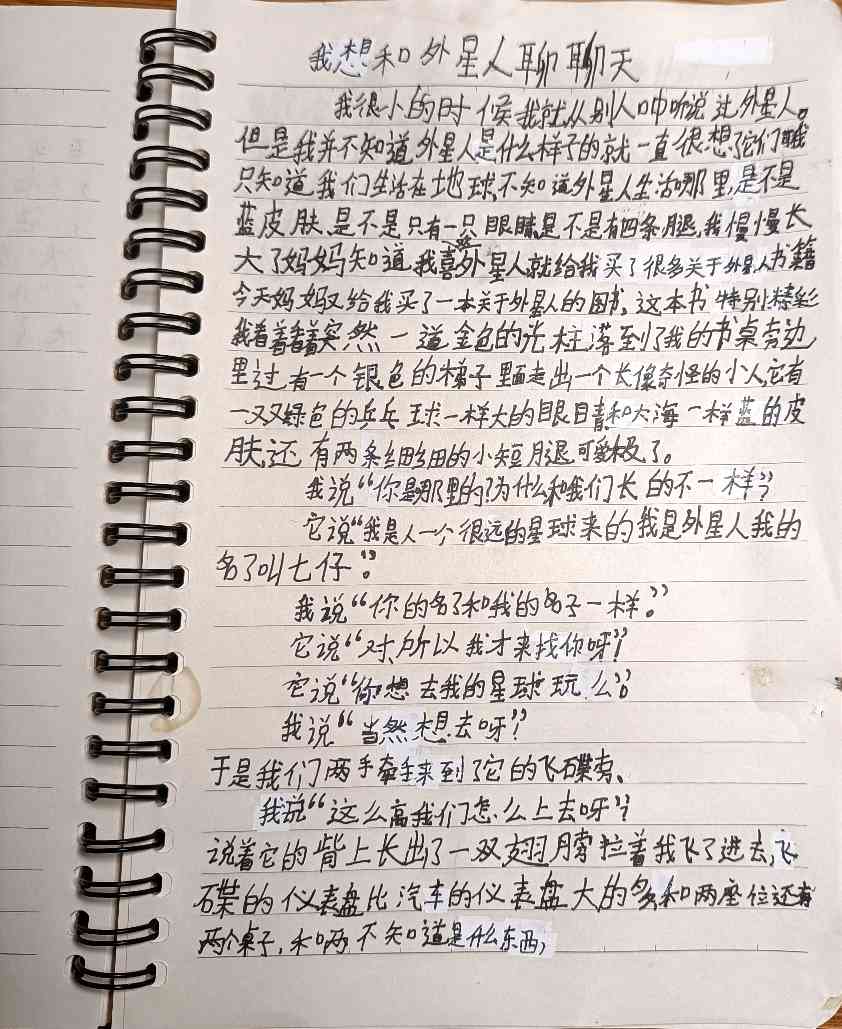 我想和外星人聊聊天
我很小的时候我就从别人口中听说过外星人。
但是我并不知道外星人是什么样子的就一直很想了它们哦我
只知道我们生活在地球,不知道外星人生活哪里,是不是
蓝皮肤是不是只有一只眼睛是不是有四条腿,我慢慢长
大了妈妈知道我喜外星人就给我买了很多关于外星人书籍
今天妈妈又给我买了一本关于外星人的图书,这本书特别精彩
我看着看着突然一道金色的光柱落到了我的书桌旁边
里过有一个银色的梯子里面走出一个长像奇怪的小人,它有
一双绿色的乒乓球一样大的眼睛和大海一样蓝的皮
肤,还有两条细细的小短腿可爱极了。
我说“你是哪里的?为什么和我们长的不一样?”
它说“我是人一个很远的星球来的我是外星人我的
名了叫七仔”。
我说“你的名了和我的名子一样。”
它说“对,所以我才来找你呀”
它说“你想去我的星球玩么”
我说“当然想去呀”
于是我们两手牵手来到了它的飞碟旁、
我说“这么高我们怎么上去呀”?
说着它的背上长出了一双翅膀拉着我飞了进去,飞
碟的仪表盘比汽车的仪表盘大的多,和两座位还有
两个桌子,和两不知道是什么东西,